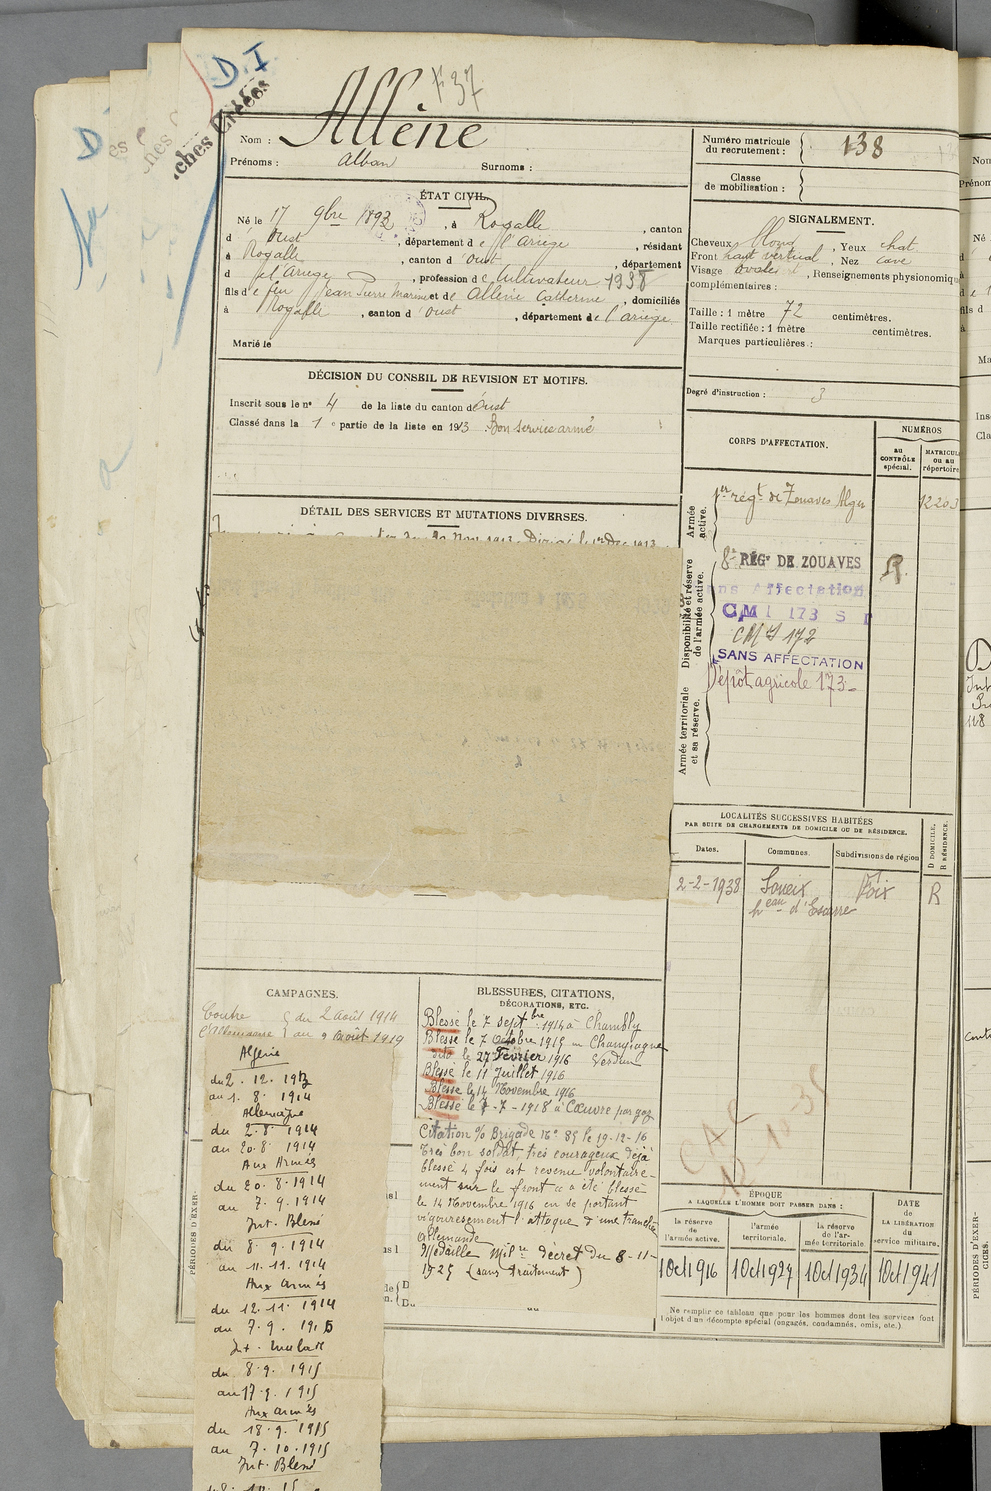 D.I
F37
Fiches Créées
Nom : Allène
Prénoms : Alban Surnoms :
Numéro matricule
du recrutement : 138
Classe
de mobilisation :
ÉTAT CIVIL.
Né le 17 9bre 1893, à Rogalle, canton
d'Oust, département de l'Ariège, résidant
à Rogalle, canton d'Oust, département
d de l'Ariège, profession de Cultivateur 1938
fils de feu Jean Pierre Marie et de Allène Catherine, domiciliés
à Rogalle, canton d'Oust, département de l'Ariège
Marié le
SIGNALEMENT.
Cheveux blond, Yeux chat.
Front haut vertical, Nez cave
Visage ovale, Renseignements physionomiqu
complémentaires :
Taille : 1 mètre 72 centimètres.
Taille rectifiée : 1 mètre centimètres.
Marques particulières :
Degré d'instruction : 3
DÉCISION DU CONSEIL DE REVISION ET MOTIFS.
Inscrit sous le n° 4 de la liste du canton d'Oust
Classé dans la 1e partie de la liste en 1913 Bon service armé
DÉTAIL DES SERVICES ET MUTATIONS DIVERSES.
Nov 1913. Dirigé le 1er Dec 1913
CORPS D'AFFECTATION.
NUMÉROS
au
CONTRÔLE
spécial.
MATRICUL
ou au
répertoire
Armée
active.
1er régt de Zouaves Alger 12203
Disponibilité et réserve
de l'armée active.
8e RÉGt DE ZOUAVES
Sans Affectation
CMI 173 S P
CMI 172
SANS AFFECTATION
Dépôt agricole 173
Armée territoriale
et sa réserve.
LOCALITÉS SUCCESSIVES HABITÉES
PAR SUITE DE CHANGEMENTS DE DOMICILE OU DE RÉSIDENCE.
Dates. Communes. Subdivisions de région
D DOMICILE.
R RÉSIDENCE.
2-2-1938 Soueix Foix R
heau d'Escarre
CAMPAGNES.
Contre du 2 août 1914
l'Allemagne au 9 août 1919
Algérie
du 2. 12. 1913
au 1. 8. 1914
Allemagne
du 2. 8. 1914
au 20. 8. 1914
Aux Armés
du 20. 8. 1914
au 7. 9. 1914
Int. Blessé
du 8. 9. 1914
au 11. 11. 1914
Aux armés
du 12. 11. 1914
au 7. 9. 1915
Int. malade
du 8. 9. 1915
au 17. 9. 1915
Aux armés
du 18. 9. 1915
au 7. 10. 1915
Int. Blessé
BLESSURES, CITATIONS,
DÉCORATIONS, ETC.
Blessé le 7 septbre 1914 à Chambly
Blessé le 7 Octobre 1915 en Champagne
dito le 27 Février 1916 Verdun
Blessé le 11 Juillet 1916
Blessé le 14 Novembre 1916
Blessé le 7-7-1918 à Cœuvre par gaz
Citation % Brigade N° 85 le 19-12-16
Très bon soldat, très courageux déjà
blessé 4 fois est revenu volontaire-
ment sur le front a a été blessé
le 14 Novembre 1916 en se portant
vigoureusement l'attaque d'une tranchée
allemande
Médaille Milre décret du 8-11-
1925 (sans traitement)
PÉRIODES D'EXER-
ÉPOQUE
A LAQUELLE L'HOMME DOIT PASSER DANS :
la réserve
de
l'armée active.
l'armée
territoriale.
la réserve
de l'ar-
mée territoriale.
DATE
de
LA LIBÉRATION
du
service militaire.
1 Oct 1916 1 Oct 1927 1 Oct 1934 1 Oct 1941
Ne remplir ce tableau que pour les hommes dont les services font
l'objet d'un décompte spécial (engagés, condamnés, omis, etc.).
PÉRIODES D'EXER-
CICES.